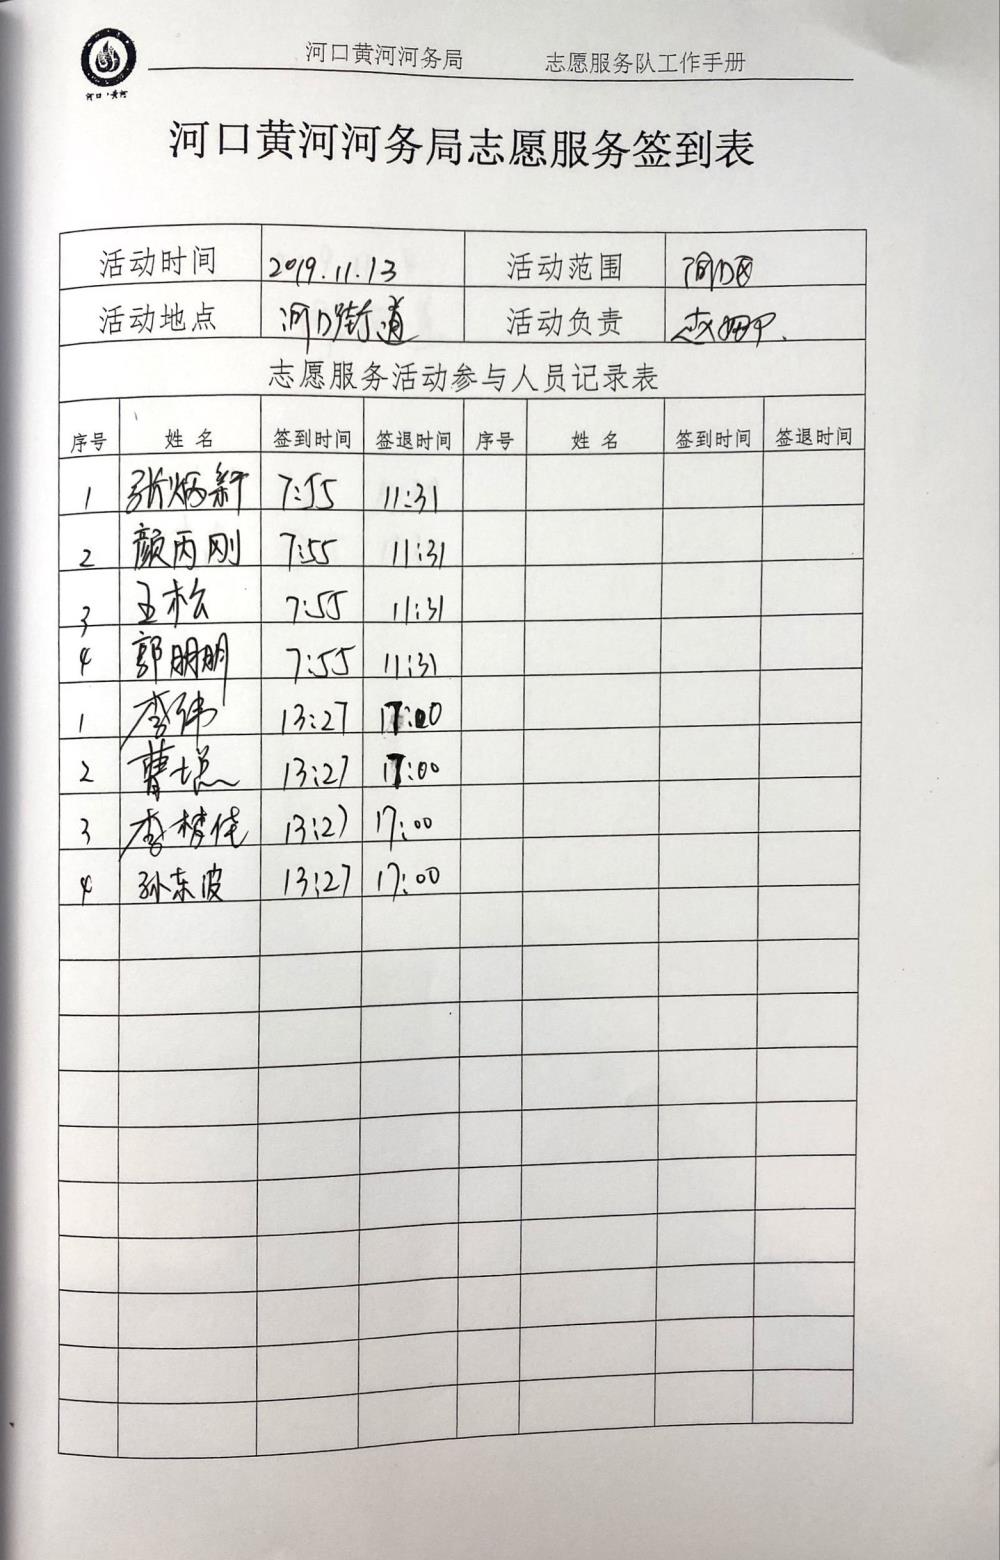 河口黄河河务局 志愿服务队工作手册
河口·黄河
河口黄河河务局志愿服务签到表
活动时间 2019.11.13 活动范围 河口区
活动地点 河口街道 活动负责
志愿服务活动参与人员记录表
序号 姓名 签到时间 签退时间 序号 姓名 签到时间 签退时间
1 张炳新 7:55 11:31
2 颜丙刚 7:55 11:31
3 王松 7:55 11:31
4 郭朋朋 7:55 11:31
1 李伟 13:27 17:00
2 曹 13:27 17:00
3 李梦佳 13:27 17:00
4 孙东波 13:27 17:00